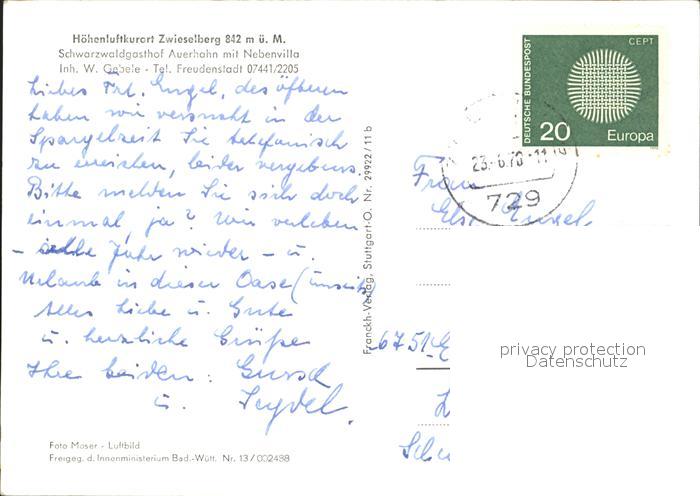 Höhenluftkurort Zwieselberg 842 m ü. M.
Schwarzwaldgasthof Auerhahn mit Nebenvilla
Inh. W. Gebele - Tel. Freudenstadt 07441/2205
Liebes Frl. Engel, des öfteren
haben wir versucht in der
Spargelzeit Sie telefonisch
zu erreichen, leider vergebens.
Bitte melden Sie sich doch
einmal, ja? Wir verleben
- alle Jahr wieder - u.
Urlaub in dieser Oase
Alles Liebe u. Gute
u. herzliche Grüße
Ihre beiden:
u. Seydel.
Foto Moser - Luftbild
Freigeg. d. Innenministerium Bad.-Württ. Nr. 13/002488
Franckh-Verlag, Stuttgart-O. Nr. 29922/11b
DEUTSCHE BUNDESPOST
CEPT
20
Europa
23.-6.70-11
729
Frau
6751
privacy protection
Datenschutz